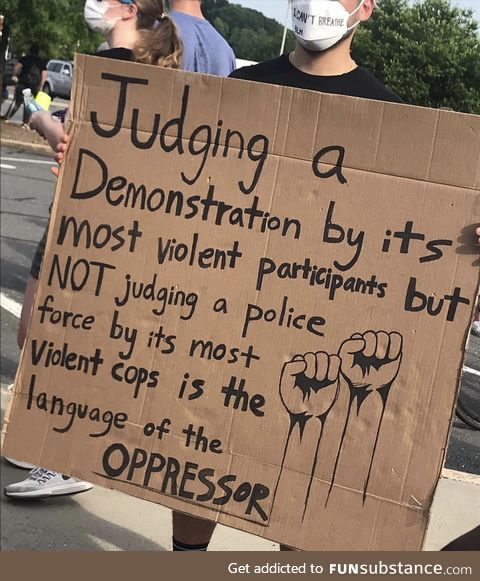 I CAN'T BREATHE
BLM
Judging a
Demonstration by its
most violent participants but
NOT judging a police
force by its most
violent cops is the
language of the
OPPRESSOR
Get addicted to FUNsubstance.com